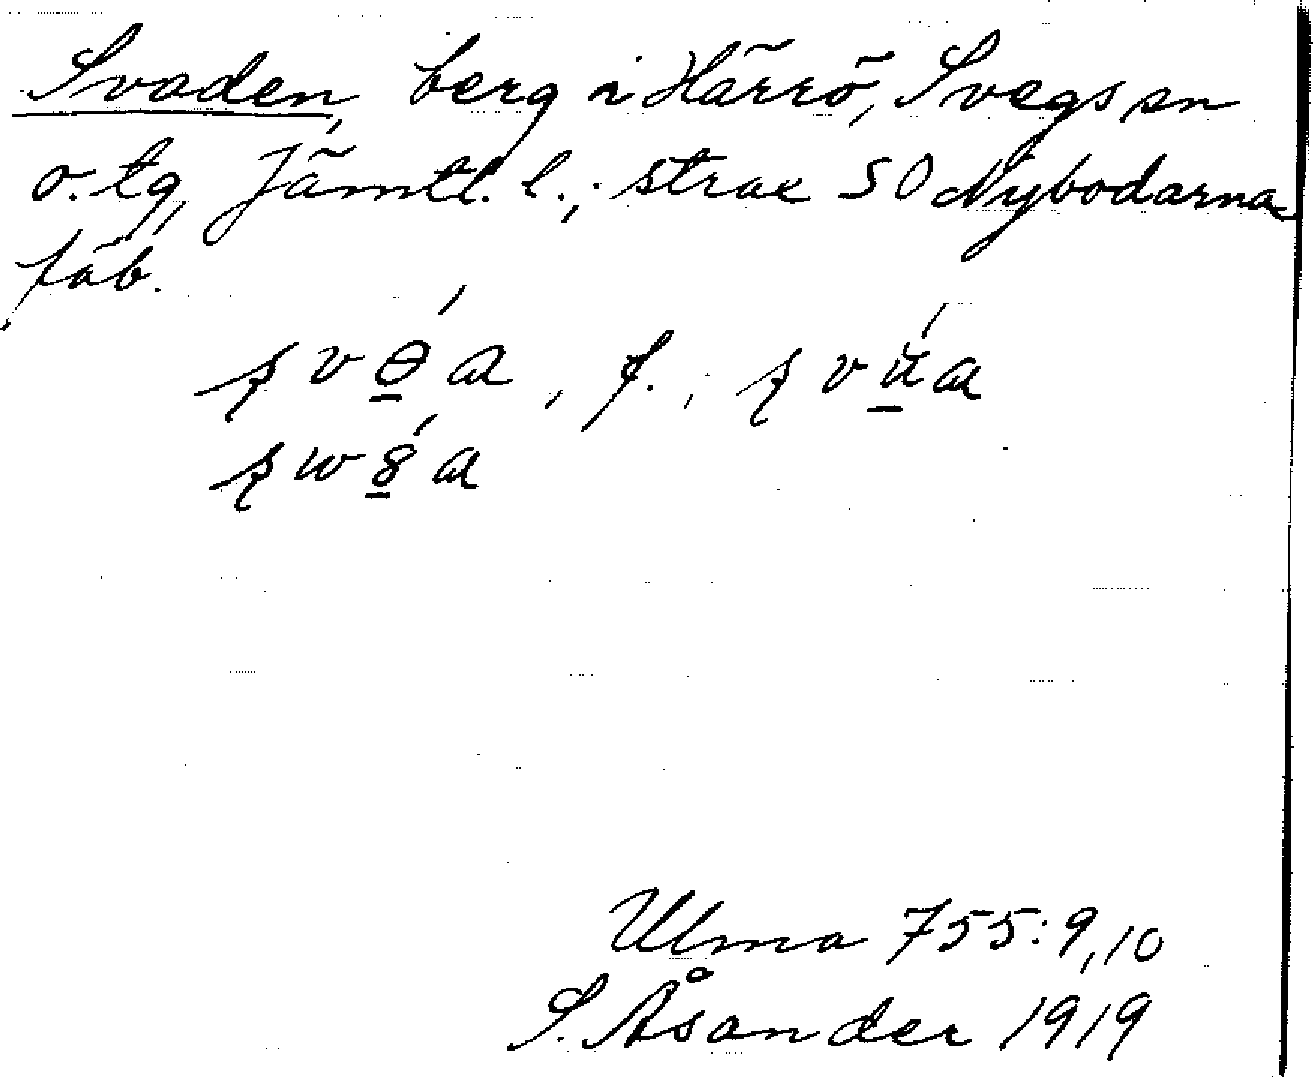 Svaden, berg i Härrö, Svegs sn
o. tg, Jämtl. l.; strax SO Nybodarna
fäb.
, f.,
Ulma 755:9,10
S. Åsander 1919